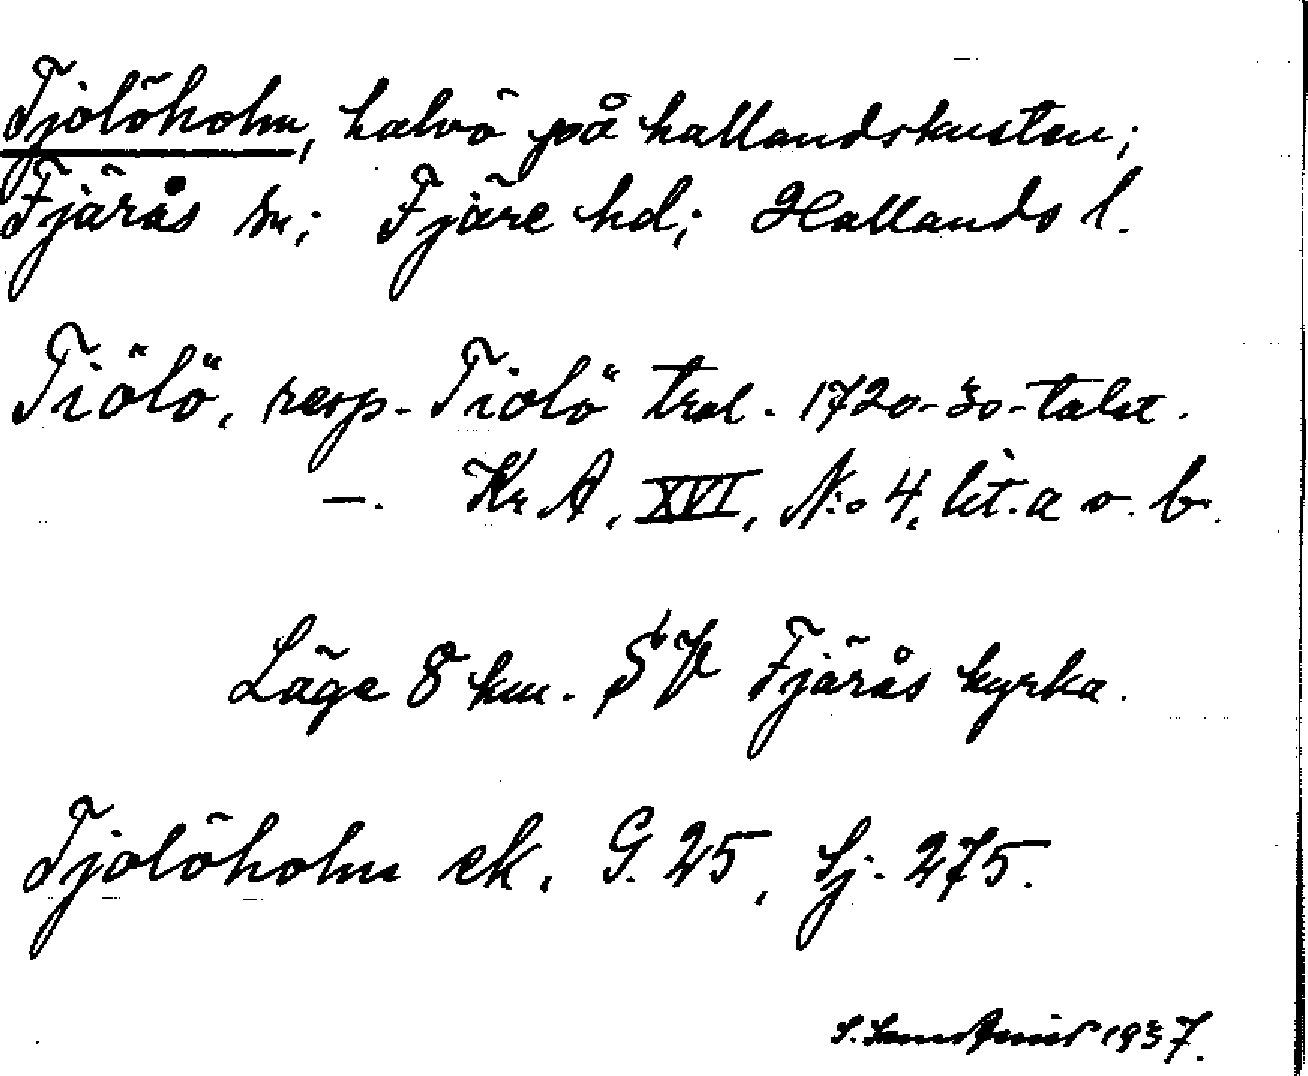 Tjolöholm, halvö på hallandskusten;
Fjärås sn; Fjäre hd; Hallands l.
Tiölö, resp. Tiolö trol. 1720-30-talet.
—. Kr A, XVI, N:o 4, lit. a o. b.
Läge 8 km. SV Fjärås kyrka.
Tjolöholm ek. G. 25, Sj. 275.
S. 1937.